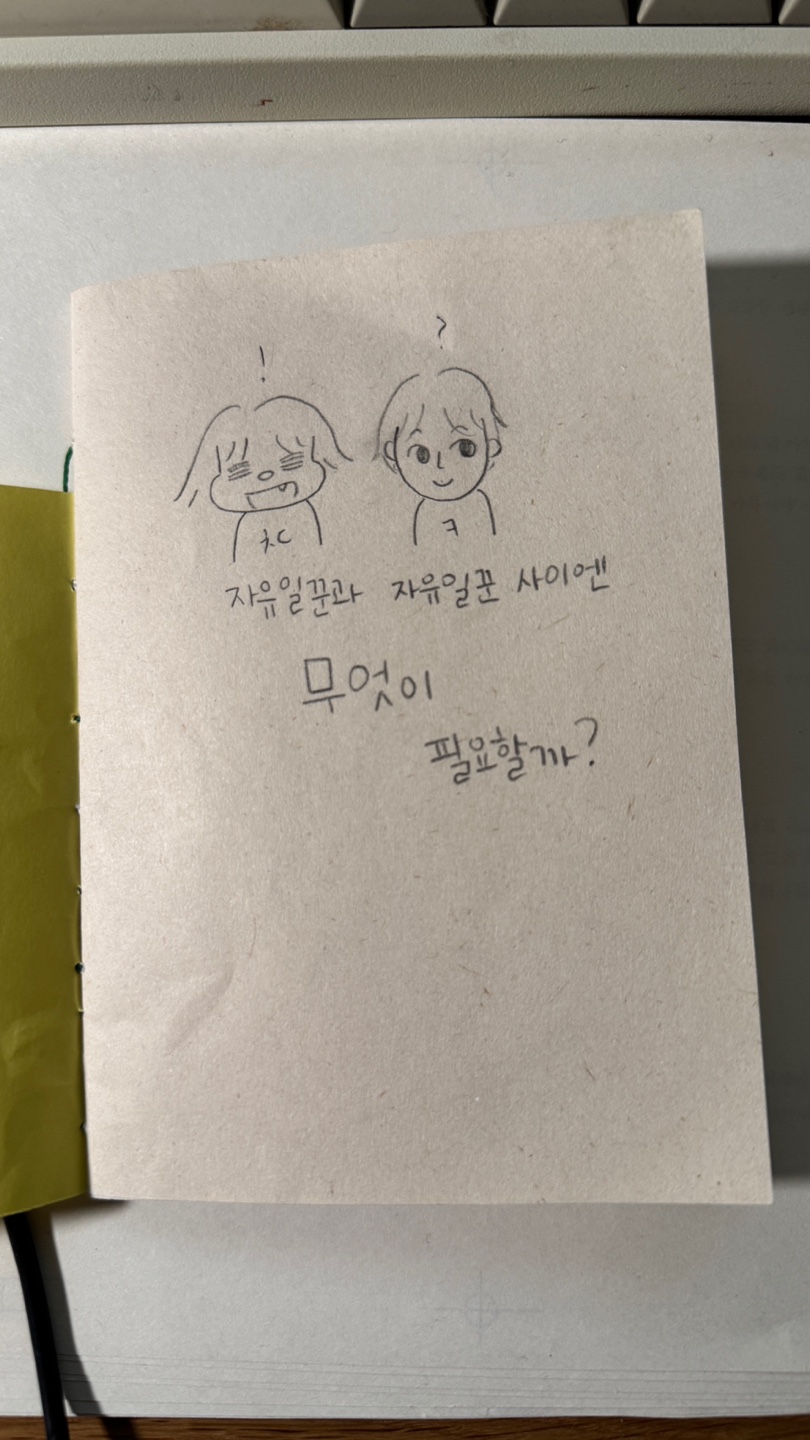 ! ?
ㅊㄷ ㅋ
자유일꾼과 자유일꾼 사이엔
무엇이
필요할까?